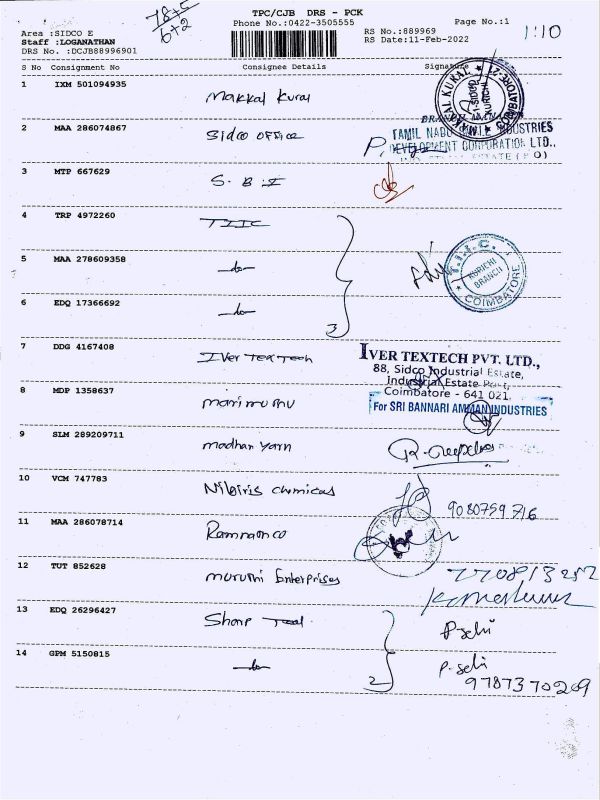 78+5
6+2
TPC/CJB DRS - PCK
Phone No.:0422-3505555
Page No.:1
1:10
Area :SIDCO E
Staff :LOGANATHAN
DRS No. :DCJB88996901
RS No.:889969
RS Date:11-Feb-2022
S No Consignment No Consignee Details Signature
1 IXM 501094935 Makkal Kural
MAKKAL KURAL COIMBATORE-21
2 MAA 286074867 Sidco office
TAMIL NADU INDUSTRIES
DEVELOPMENT CORPORATION LTD.,
3 MTP 667629 S.B.I
4 TRP 4972260 TIIC
5 MAA 278609358 -do-
T.I.I.C. KURICHI BRANCH COIMBATORE
6 EDQ 17366692 -do-
3
7 DDG 4167408 Iver Tex Tech
IVER TEXTECH PVT. LTD.,
88, Sidco Industrial Estate,
Industrial Estate Post,
Coimbatore - 641 021.
8 MDP 1358637 marimuthu
For SRI BANNARI AMMAN INDUSTRIES
9 SLM 289209711 madhan yarn
10 VCM 747783 Nibiris chemicas
9080759716
11 MAA 286078714 Ramnanco
12 TUT 852628 muruthi Enterprises
13 EDQ 26296427 Sharp Tool
P-selvi
14 GPM 5150815 -do-
2
P-selvi
9787370269